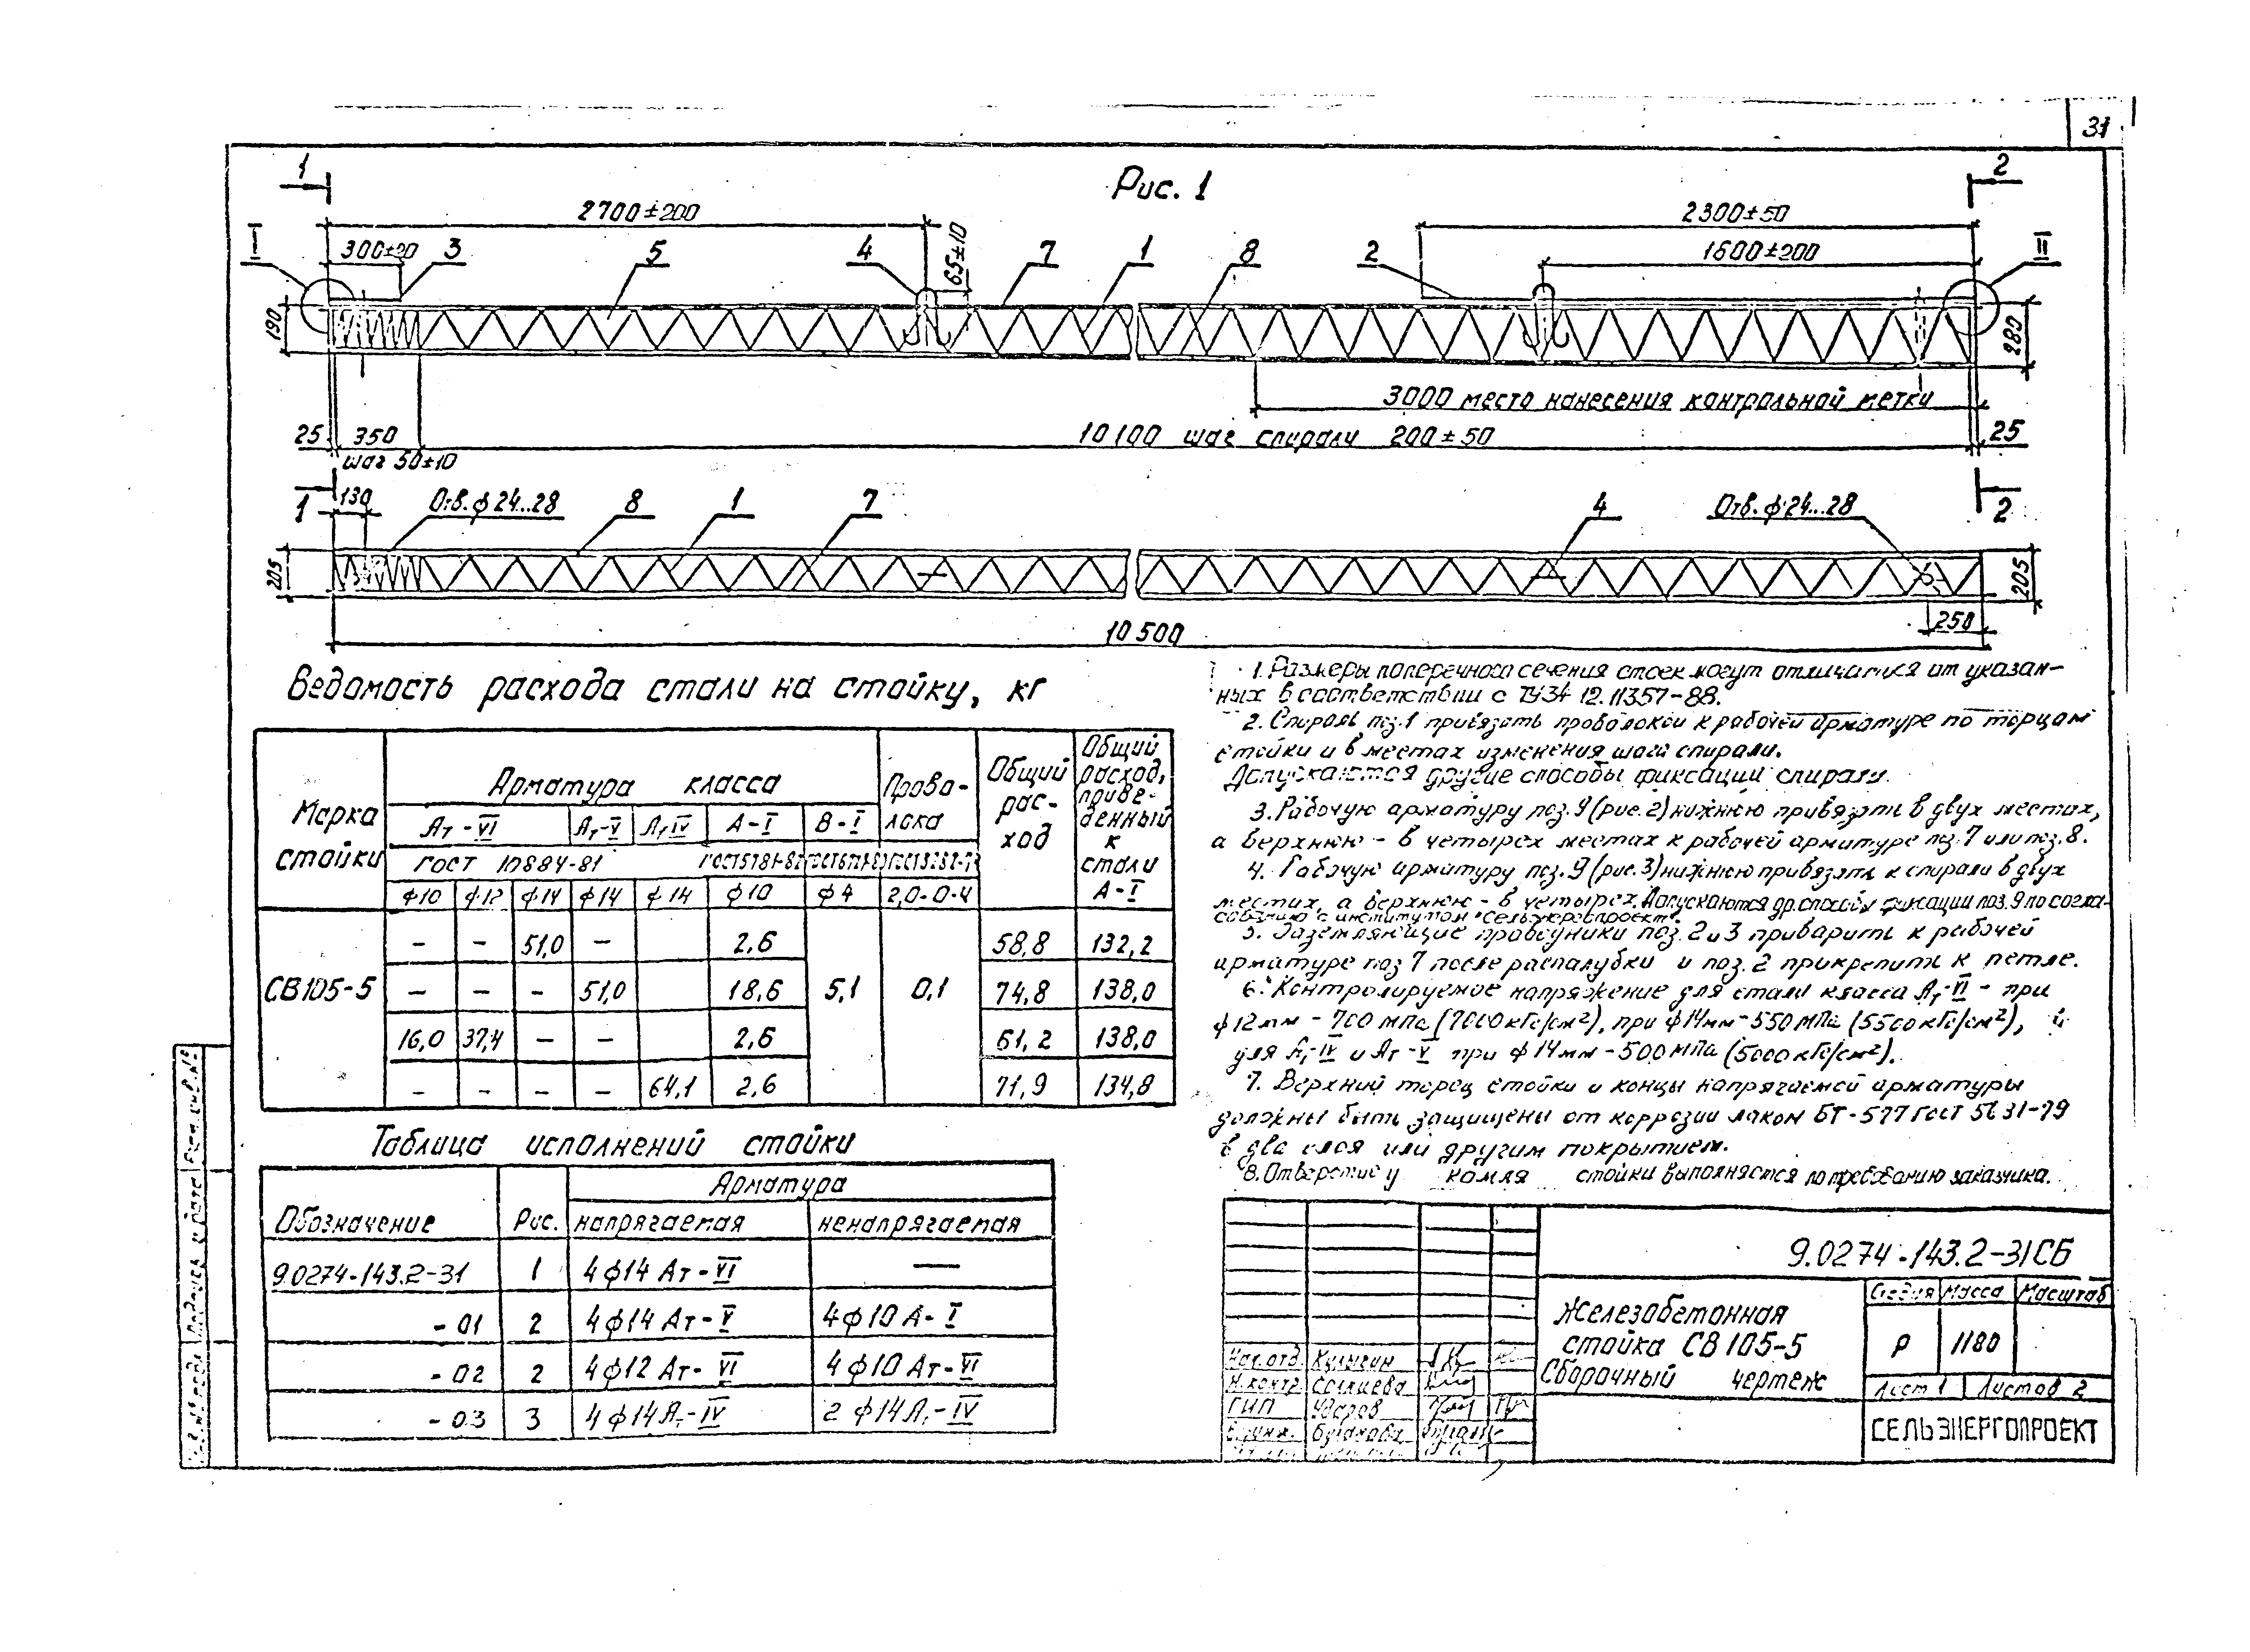 31
Рис. 1
1
2
2700±200
2300±50
I
300±20
3
5
4
65±10
7
1
8
2
1600±200
II
190
280
3000 место нанесения контрольной метки
25
350
10100 шаг спирали 200±50
25
шаг 50±10
1
130
Отв. ф24...28
8
1
7
4
Отв. ф24...28
2
205
205
10500
250
Ведомость расхода стали на стойку, кг
Марка стойки
Арматура класса
Прово-
лока
Общий рас-
ход
Общий расход, приве-
денный к стали А-I
Ат-VI
Ат-V
Ат IV
А-I
В-I
ГОСТ 10884-81
ф10
ф12
ф14
ф14
ф14
ф10
ф4
2,0-0-4
СВ105-5
–
–
51,0
–
2,6
5,1
0,1
58,8
132,2
–
–
–
51,0
18,6
74,8
138,0
16,0
37,4
–
–
2,6
61,2
138,0
–
–
–
–
64,1
2,6
71,9
134,8
Таблица исполнений стойки
Обозначение
Рис.
Арматура
напрягаемая
ненапрягаемая
9.0274-143.2-31
1
4ф14 Ат-VI
—
-01
2
4ф14 Ат-V
4ф10 А-I
-02
2
4ф12 Ат-VI
4ф10 Ат-VI
-03
3
4ф14 Ат-IV
2ф14 Ат-IV
1. Размеры поперечного сечения стоек могут отличаться от указан-
ных в соответствии с ТУ34 12.11357-88.
2. Спираль поз.1 привязать проволокой к рабочей арматуре по торцам
стойки и в местах изменения шага спирали.
Допускаются другие способы фиксации спирали.
3. Рабочую арматуру поз.9 (рис.2) нижнюю привязать в двух местах,
а верхнюю – в четырех местах к рабочей арматуре поз.7 или поз.8.
4. Рабочую арматуру поз.9 (рис.3) нижнюю привязать к спирали в двух
местах, а верхнюю – в четырех. Допускаются др. способы фиксации поз.9 по согла-
сованию с институтом
5. Заземляющие проводники поз.2 и 3 приварить к рабочей
арматуре поз 7 после распалубки и поз.2 прикрепить к петле.
6. Контролируемое напряжение для стали класса Ат-VI – при
ф12мм – 700 МПа (7000кГс/см²), при ф14мм – 550 МПа (5500кГс/см²),
для Ат-IV и Ат-V при ф14мм – 500 МПа (5000кГс/см²).
7. Верхний торец стойки и концы напрягаемой арматуры
должны быть защищены от коррозии лаком БТ-577 ГОСТ 5631-79
в два слоя или другим покрытием.
8. Отверстие у комля стойки выполняется по требованию заказчика.
9.0274-143.2-31СБ
Железобетонная
стойка СВ 105-5
Сборочный чертеж
Стадия
Масса
Масштаб
Р
1180
Лист 1
Листов 2
СЕЛЬЭНЕРГОПРОЕКТ
Нач.отд.
Н.контр.
ГИП
Ударов